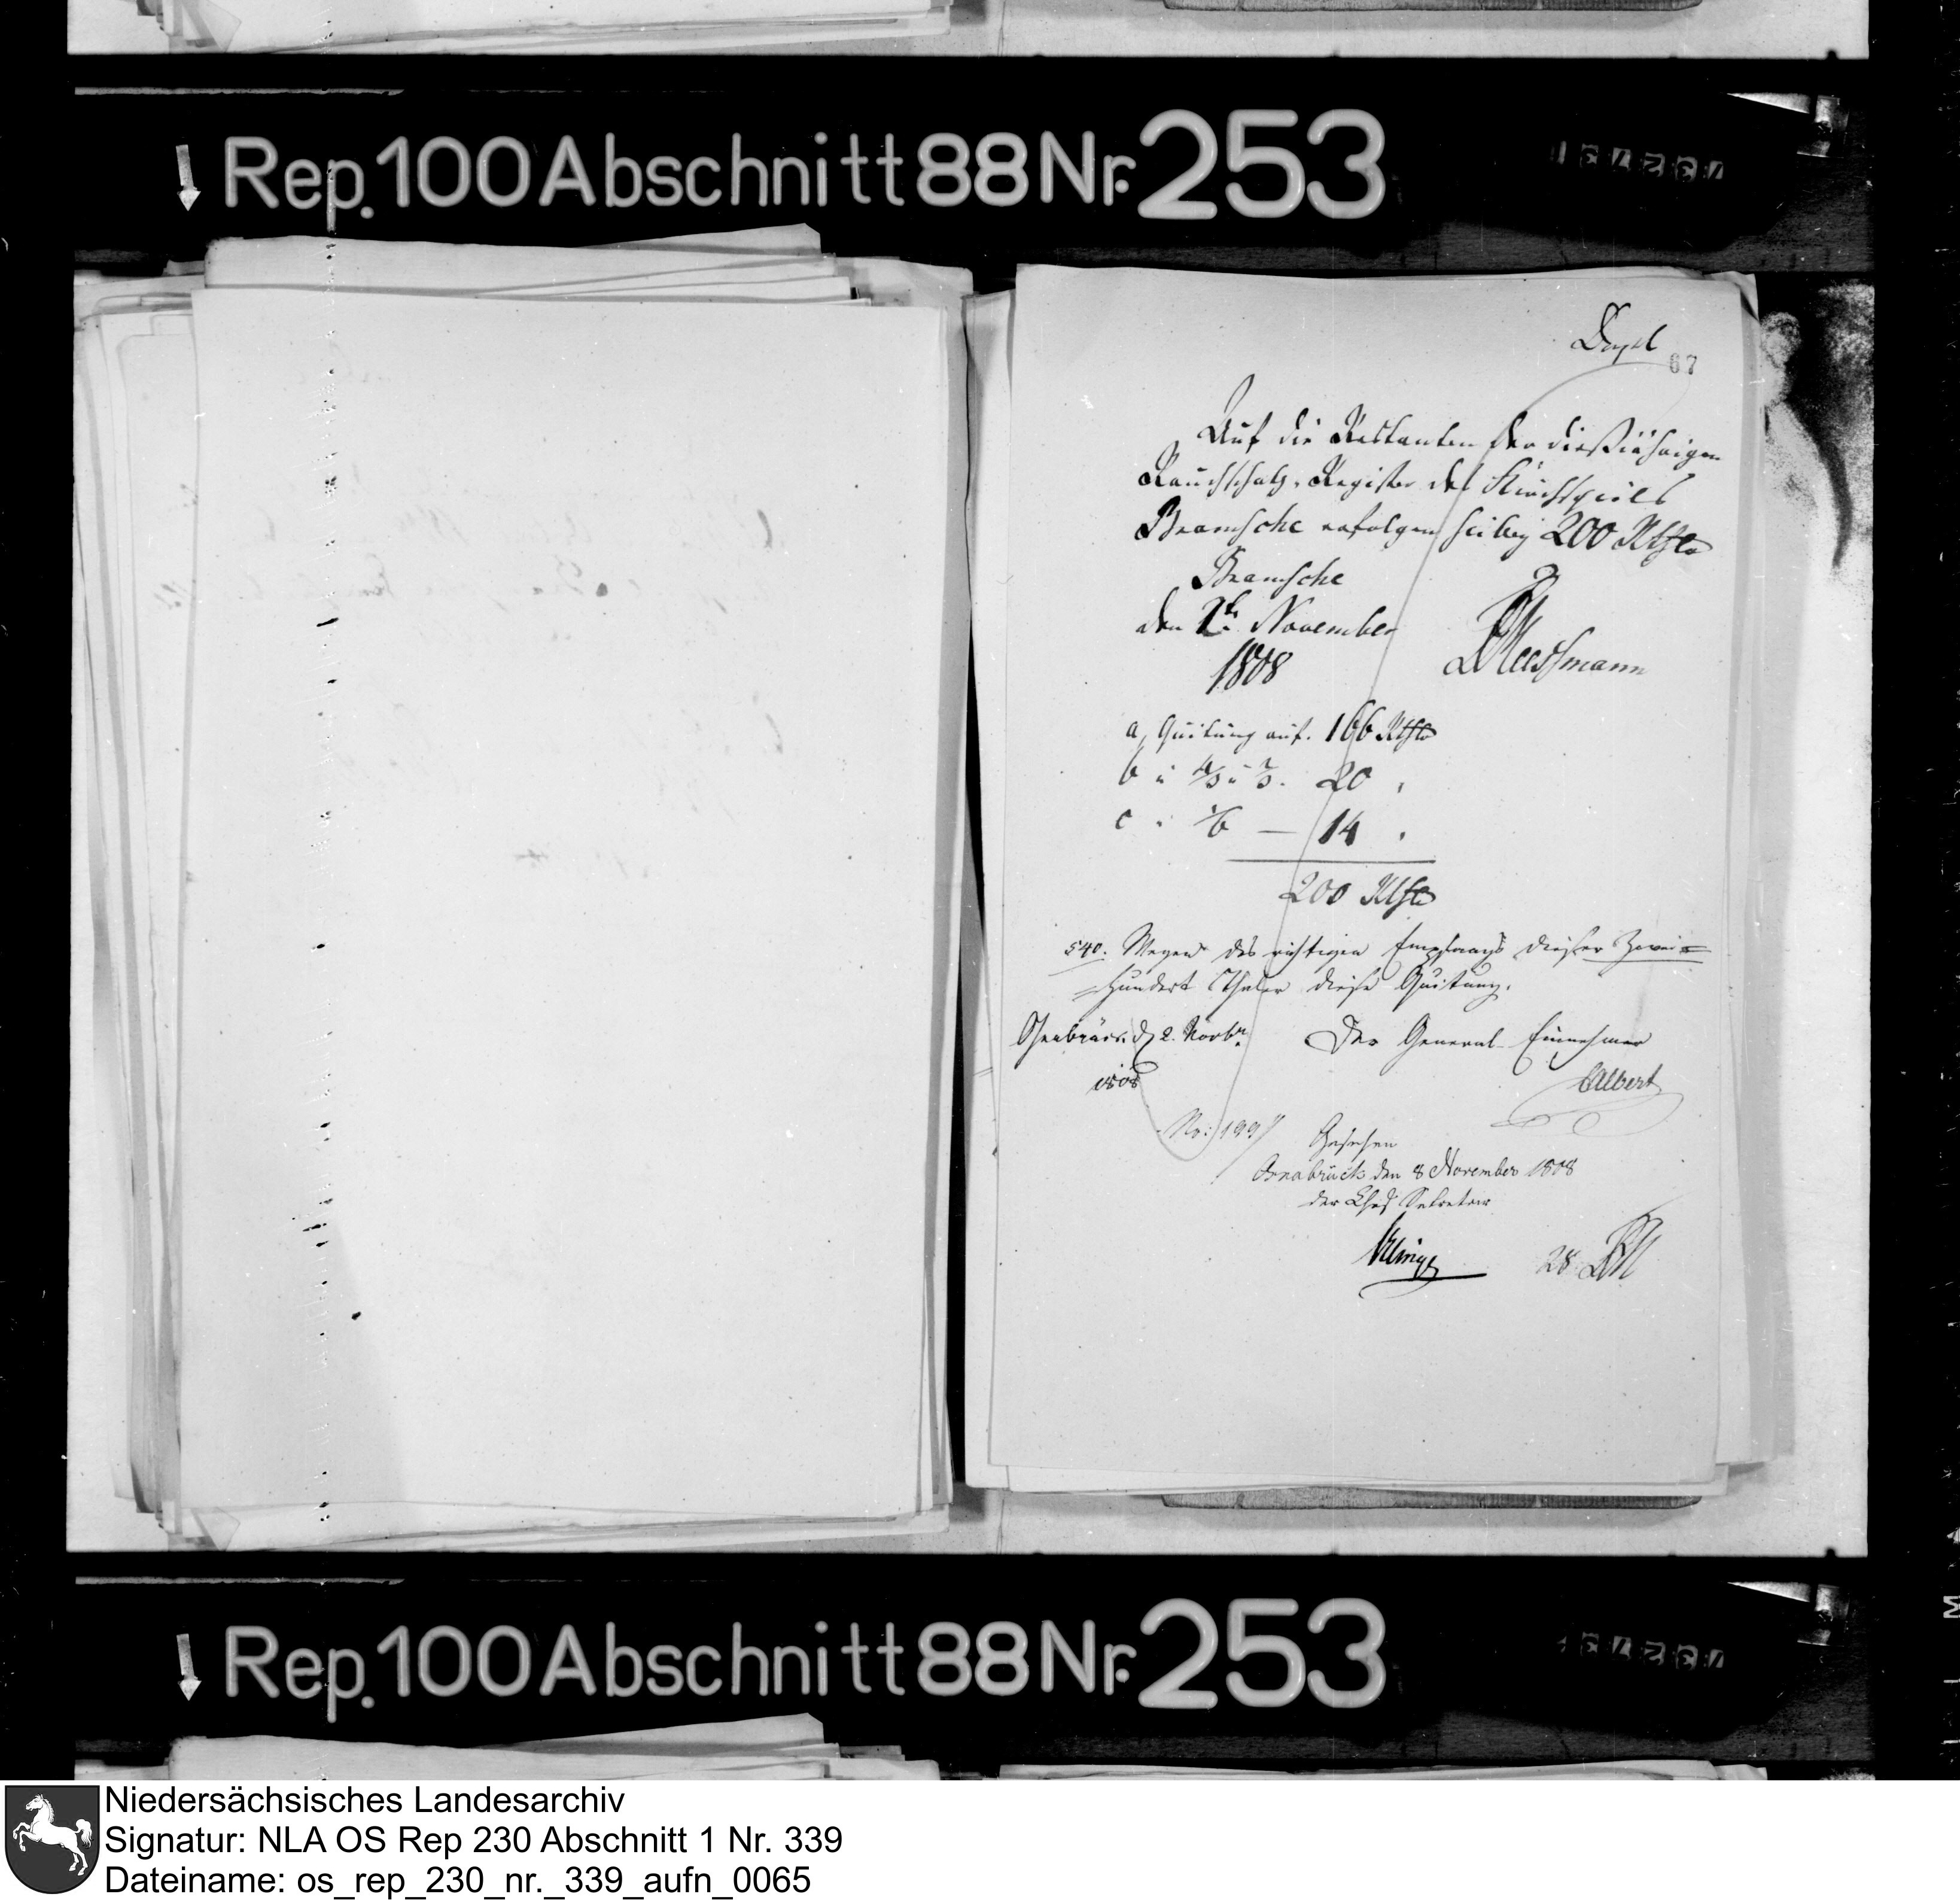 Rep. 100 Abschnitt 88 Nr. 253
Dupl
67
Auf die Restanten der dießjährigen
Rauchschatz-Register des Kirchspiels
Bramsche erfolgen hiebey 200 Rthlr
Bramsche
den 2t. November
1808
a, Quitung auf. 166 Rthlr
b
20
c 1/6 — 14
200 Rthlr
540. Wegen des richtigen Empfangs dieser Zwei=
=hundert Thaler diese Quitung.
Osnabrück d 2. Novbr.
Der General Einnehmer
1808
Albert
No: 199
Gesehen
Osnabrück den 8 November 1808
der Chef Sekretair
28
Rep. 100 Abschnitt 88 Nr. 253
Niedersächsisches Landesarchiv
Signatur: NLA OS Rep 230 Abschnitt 1 Nr. 339
Dateiname: os_rep_230_nr._339_aufn_0065